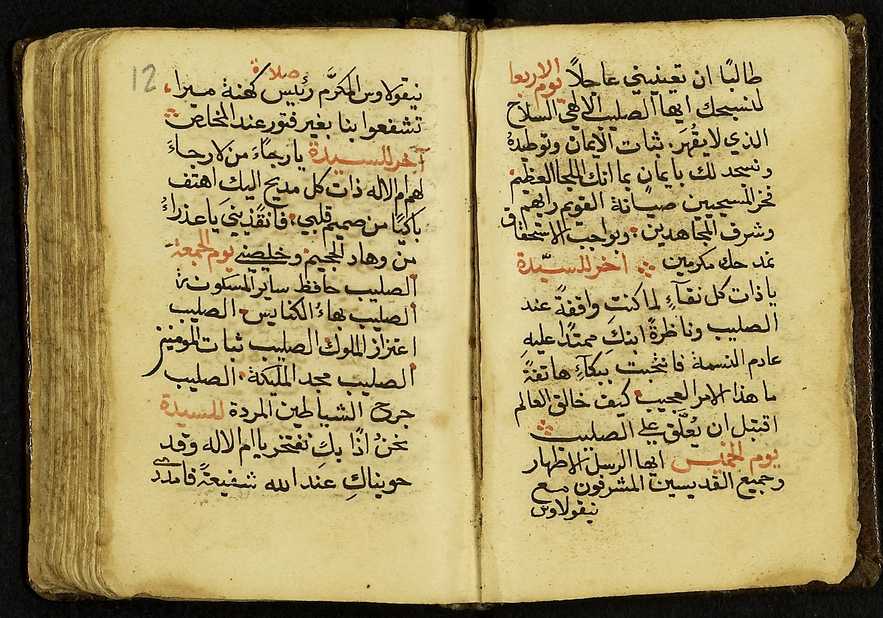 طالبًا ان تعينيني عاجلاً يوم الاربعا
لنسبحك ايها الصليب الالهي السلاح
الذي لا يُقهَر. ثبات الايمان وتوطيدهُ
ونسجد لك بايمانٍ بما انك الملجا العظيم
فخر المسيحيين صيانة القويم رايهم
وشرف المجاهدين. وبواجب الاستحقاق
نمدحك مكرمين آخر للسيّدة
يا ذات كل نقآءٍ لما كنت واقفةً عند
الصليب وناظرةً ابنكِ ممتدًا عليهِ
عادم النسمة فانتحبت ببكآءٍ هاتفةً
ما هذا الامر العجيب كيف خالق العالم
اقتبل ان يُعلَّق على الصليب
يوم الخميس ايها الرسل الاظهار
وجميع القديسين المشرفون مع
نيقولاوس
12
صلاة
نيقولاوس المكرَّم رئيس كهنة ميرا
تشفعوا بنا بغير فتور عند المخلص
آخر للسيدة يا رجآءَ من لا رجآءَ
لهم ام الاله ذات كل مديح اليك اهتف
باكيًا من صميم قلبي. فانقذيني يا عذراءُ
من وهاد الجحيم وخلصيني يوم الجمعة
الصليب حافظ ساير المسكونة
الصليب بهاءُ الكنايس. الصليب
اعتزاز الملوك الصليب ثبات المومنين
الصليب مجد المليكة. الصليب
جرح الشياطين المردة للسيدة
نحنُ اذًا بكِ نفتخر يا ام الاله وقد
حويناكِ عند الله شفيعةً فامددي